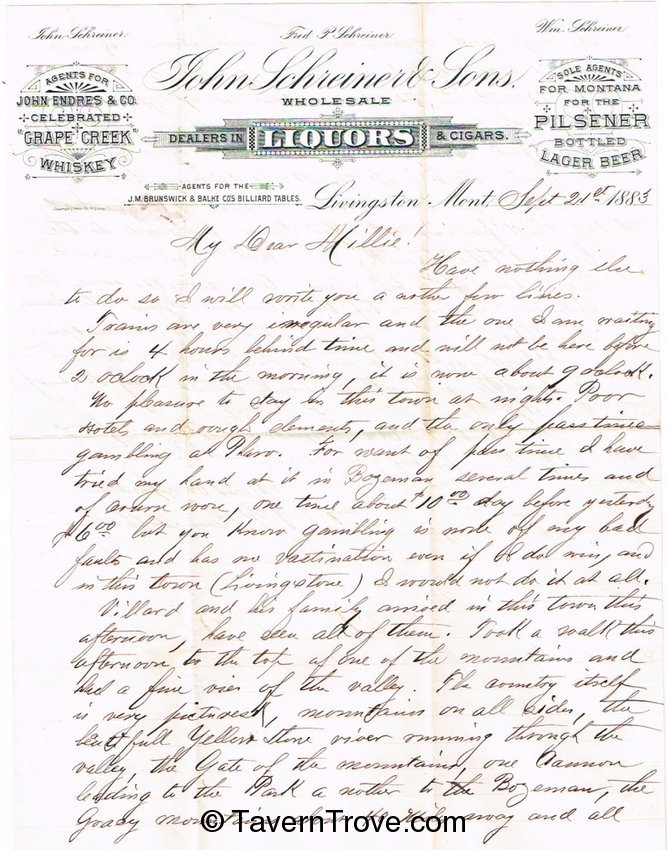 John Schreiner Fred P. Schreiner Wm. Schreiner
John Schreiner & Sons.
WHOLESALE
DEALERS IN LIQUORS & CIGARS.
AGENTS FOR
JOHN ENDRES & CO.
CELEBRATED
"GRAPE CREEK"
WHISKEY
SOLE AGENTS
FOR MONTANA
FOR THE
PILSENER
BOTTLED
LAGER BEER
AGENTS FOR THE
J.M. BRUNSWICK & BALKE CO'S BILLIARD TABLES.
Livingston Mont. Sept 21st 1883
My Dear Millie!
Have nothing else
to do so I will write you a nother few lines.
Trains are very irregular and the one I am waiting
for is 4 hours behind time and will not be here before
2 oclock in the morning, it is now about 9 oclock.
No pleasure to stay in this town at nights. Poor
Hotels and rough elements, and the only pass time
gambling at Pharo. For want of pass time I have
tried my hand at it in Bozeman several times and
of course won, one time about $10 00 day before yesterday
$6 00 but you know gambling is none of my bad
faults and has no vastination even if I do win, and
in this town (Livingstone) I would not do it at all.
Villard and his family arrived in this town this
afternoon, have seen all of them. Took a walk this
afternoon, to the top of one of the mountains and
had a fine view of the valley. The country itself
is very picturesk, mountains on all sides, the
beautifull Yellow Stone river running through the
valley, the Gate of the mountains, one Cannon
leading to the Park a nother to the Bozeman, the
mountains away and all
© TavernTrove.com